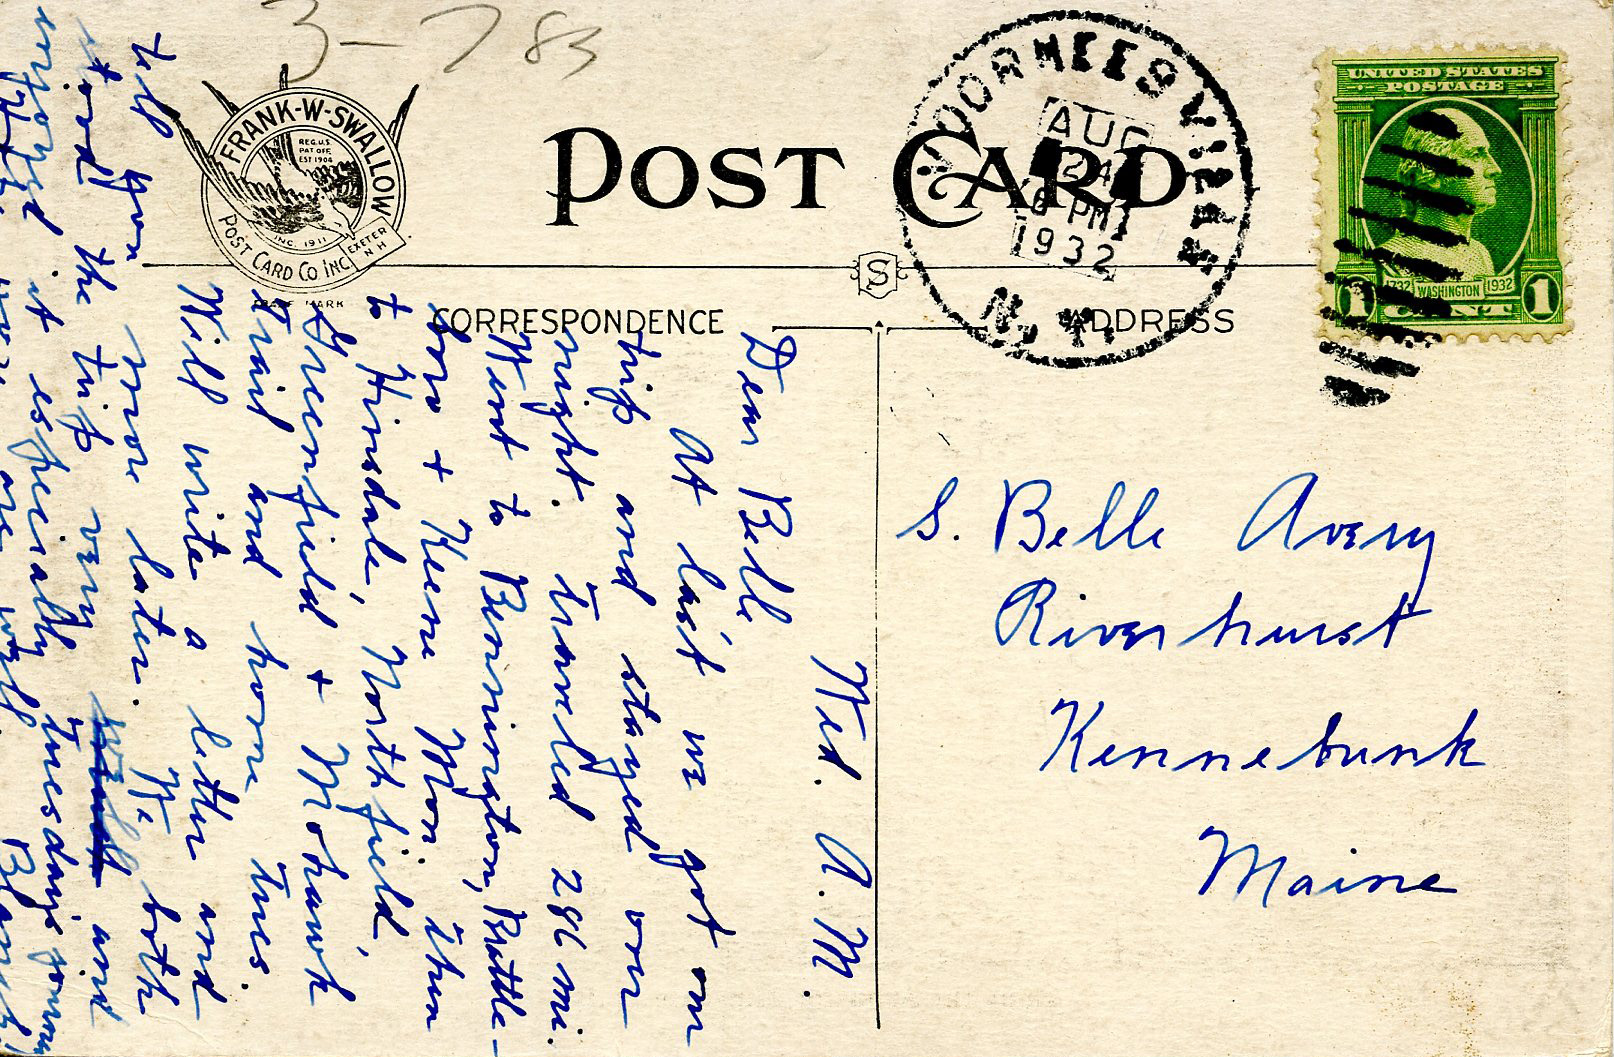 3-783
FRANK-W-SWALLOW
REG.U.S.
PAT OFF.
EST 1904
INC. 1911
POST CARD CO INC
EXETER
N H
TRADE MARK
POST CARD
VOORHEESVILLE
AUG
24
6 PM
1932
N.Y.
UNITED STATES
POSTAGE
1732 WASHINGTON 1932
1 CENT 1
S
CORRESPONDENCE
ADDRESS
Wed. A. M.
Dear Belle
At last we got on
trip and stayed over
night. Traveled 286 mi.
Went to Bennington, Brattle-
boro + Keene Mon. then
to Hinsdale, Northfield,
Greenfield + Mohawk
Trail and home Tues.
Will write a letter and
tell you more later. We both
stood the trip very well and
enjoyed it especially Tuesdays
are well.
S. Belle Avery
Riverhurst
Kennebunk
Maine